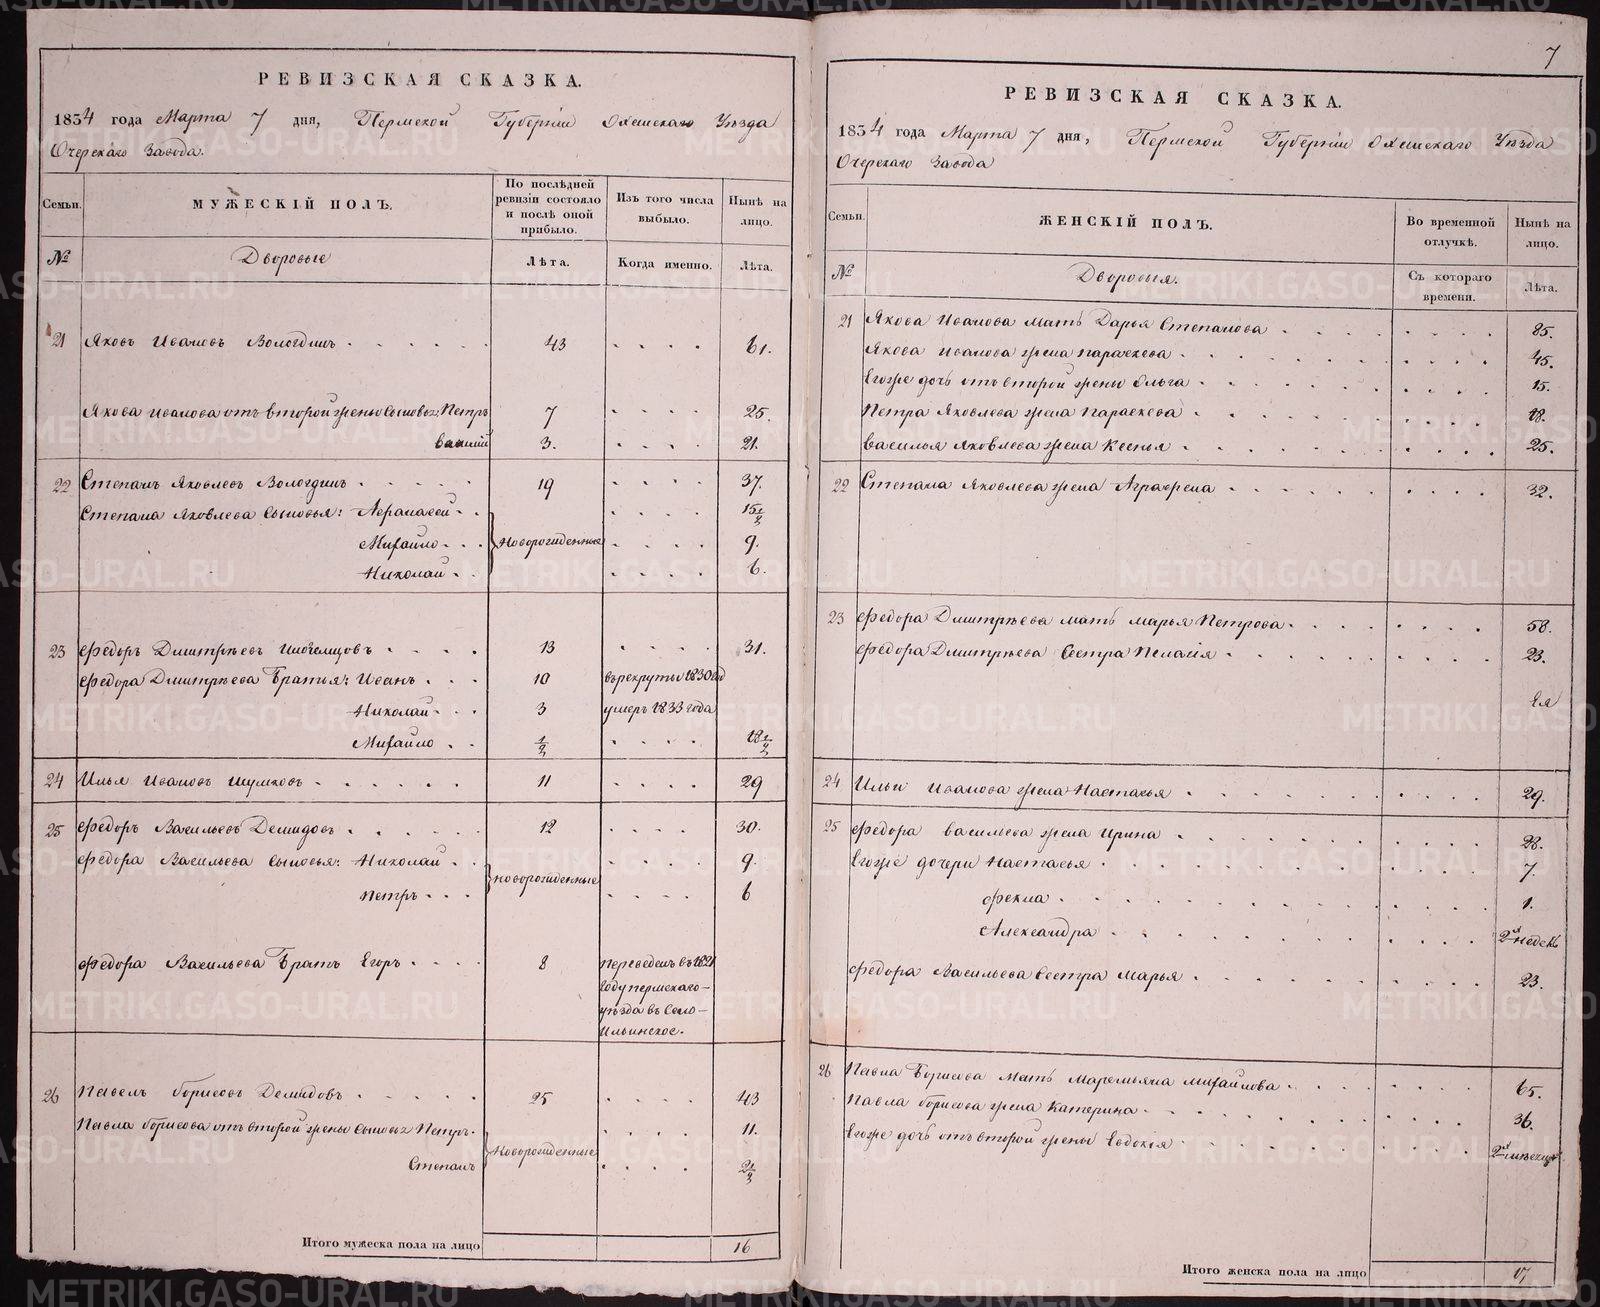 РЕВИЗСКАЯ СКАЗКА.
1834 года Марта 7 дня, Пермской Губернiи Оханскаго Уѣзда
Очерскаго Завода.
Семьи.
МУЖЕСКIЙ ПОЛЪ.
По послѣдней ревизiи состояло и послѣ оной прибыло.
Изъ того числа выбыло.
Нынѣ на лицо.
№
Дворовые
Лѣта.
Когда именно.
Лѣта.
21 Яковъ Ивановъ Вологдинъ 43 61.
Якова Иванова отъ второй жены сыновья; Петръ 7 25.
Василiй 3. 21.
22 Степанъ Яковлевъ Вологдинъ 19 37.
Степана Яковлева сыновья: Афанасей 15½
Михайло Новорожденные 9.
Николай 6.
23 Федоръ Дмитрѣевъ Иноземцовъ 13 31.
Федора Дмитрѣева Братья: Иванъ 10 въ рекруты 1830 год
Николай 3 умеръ 1833 года
Михайло ½ 18½
24 Илья Ивановъ Шумковъ 11 29
25 Федоръ Васильевъ Демидовъ 12 30.
Федора Васильева сыновья: Николай 9.
новорожденные
Петръ 6
Федора Васильева Братъ Егоръ 8 переведенъ въ 1821
году пермскаго
уѣзда въ Село
Ильинское.
26 Павелъ Борисовъ Демидовъ 25 43
Павла Борисова отъ второй жены сыновья Петръ 11.
Новорожденные
Степанъ 2½
Итого мужеска пола на лицо 16
7
РЕВИЗСКАЯ СКАЗКА.
1834 года Марта 7 дня, Пермской Губернiи Оханскаго Уѣзда
Очерскаго Завода
Семьи.
ЖЕНСКIЙ ПОЛЪ.
Во временной отлучкѣ.
Нынѣ на лицо.
№
Дворовыя.
Съ котораго времени.
Лѣта.
21 Якова Иванова мать Дарья Степанова 85.
Якова Иванова жена Параскева 45.
Егоже дочь отъ второй жены Ольга 15.
Петра Яковлева жена Параскева 18.
Василья Яковлева жена Ксенья 25.
22 Степана Яковлева жена Аграфена 32.
23 Федора Дмитрѣева мать Марья Петрова 58.
Федора Дмитрѣева Сестра Пелагiя 23.
24 Ильи Иванова жена Настасья 29.
25 Федора Васильева жена Ирина 28.
Егоже дочери Настасья 7
Фекла 1.
Александра 2хъ недель
Федора Васильева Сестра Марья 23.
26 Павла Борисова мать Маремьяна Михайлова 65.
Павла Борисова жена Катерина 36.
Егоже дочь отъ второй жены Евдокiя 2хъ мѣсяц
Итого женска пола на лицо 17
METRIKI.GASO-URAL.RU